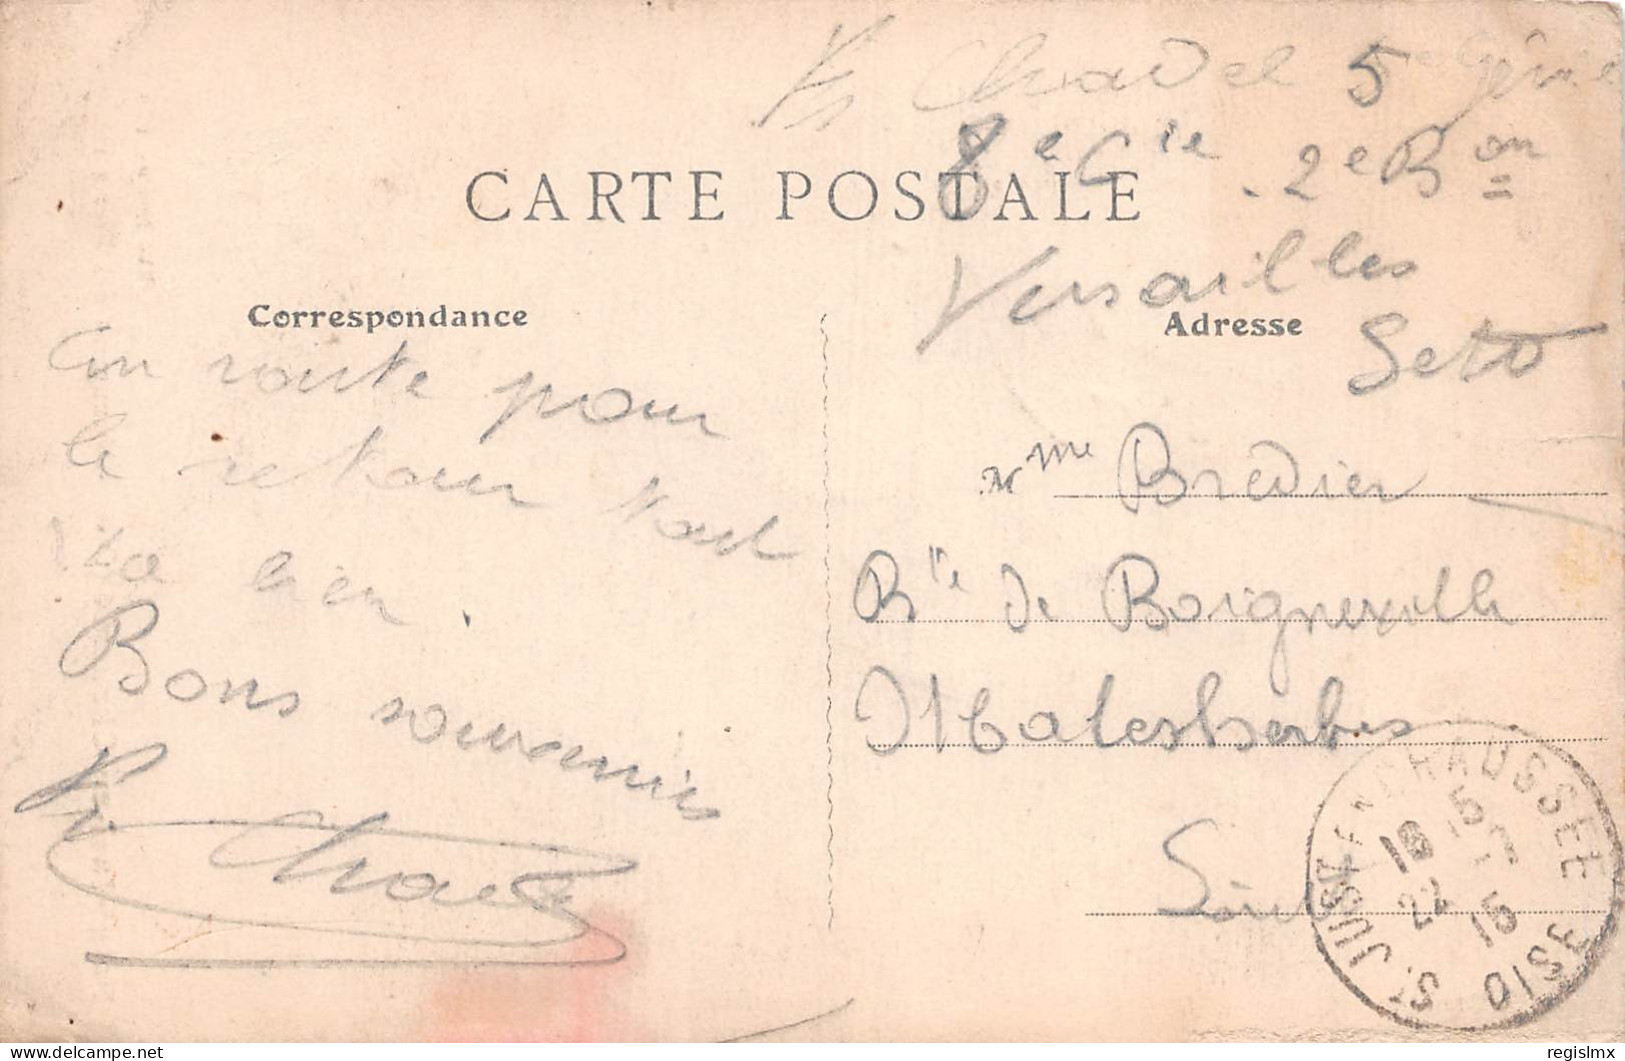 Chadel 5e Génie
8e Cie - 2e Bon
Versailles
Seto
CARTE POSTALE
Correspondance
Adresse
En route pour
le retour tout
va bien.
Bons souvenirs
Mme Bredier
Rte de Boigneville
Malesherbes
ST JUST-EN-CHAUSSEE OISE
16 15
22 - 7 15
delcampe.net
regislmx